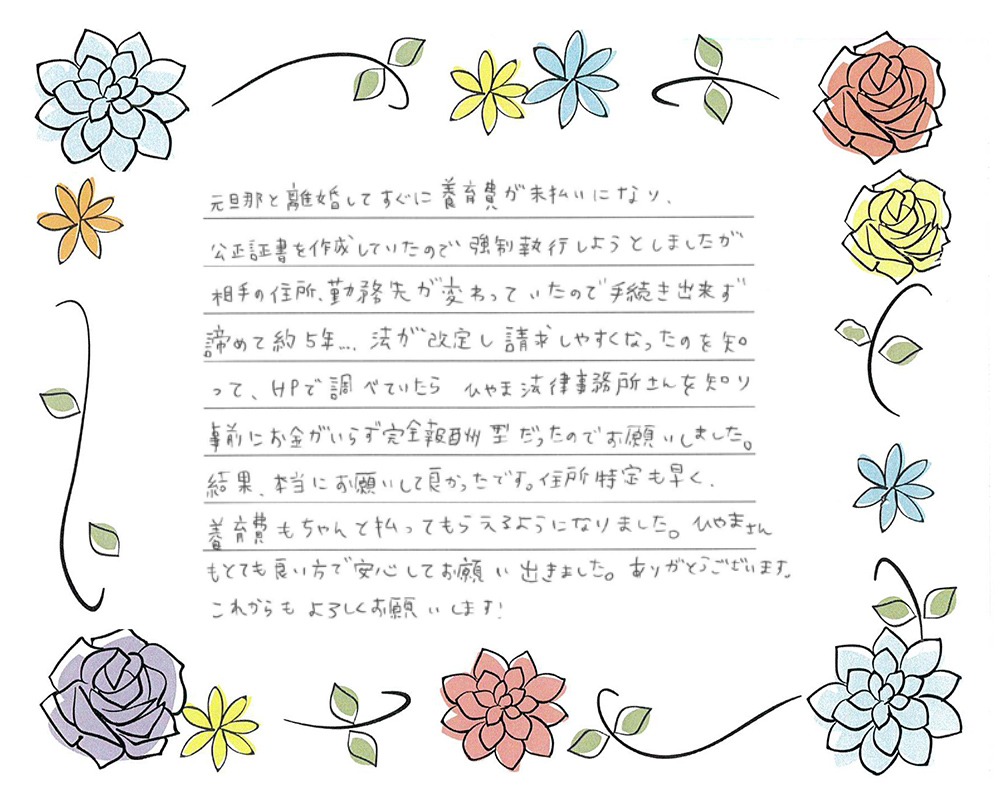 元旦那と離婚してすぐに養育費が未払いになり、
公正証書を作成していたので強制執行しようとしましたが
相手の住所、勤務先が変わっていたので手続き出来ず
諦めて約5年… 法が改定し請求しやすくなったのを知
って、HPで調べていたら ひやま法律事務所さんを知り
事前にお金がいらず完全報酬型だったのでお願いしました。
結果、本当にお願いして良かったです。住所特定も早く、
養育費もちゃんと払ってもらえるようになりました。ひやまさん
もとても良い方で安心してお願い出きました。ありがとうございます。
これからも よろしくお願いします!